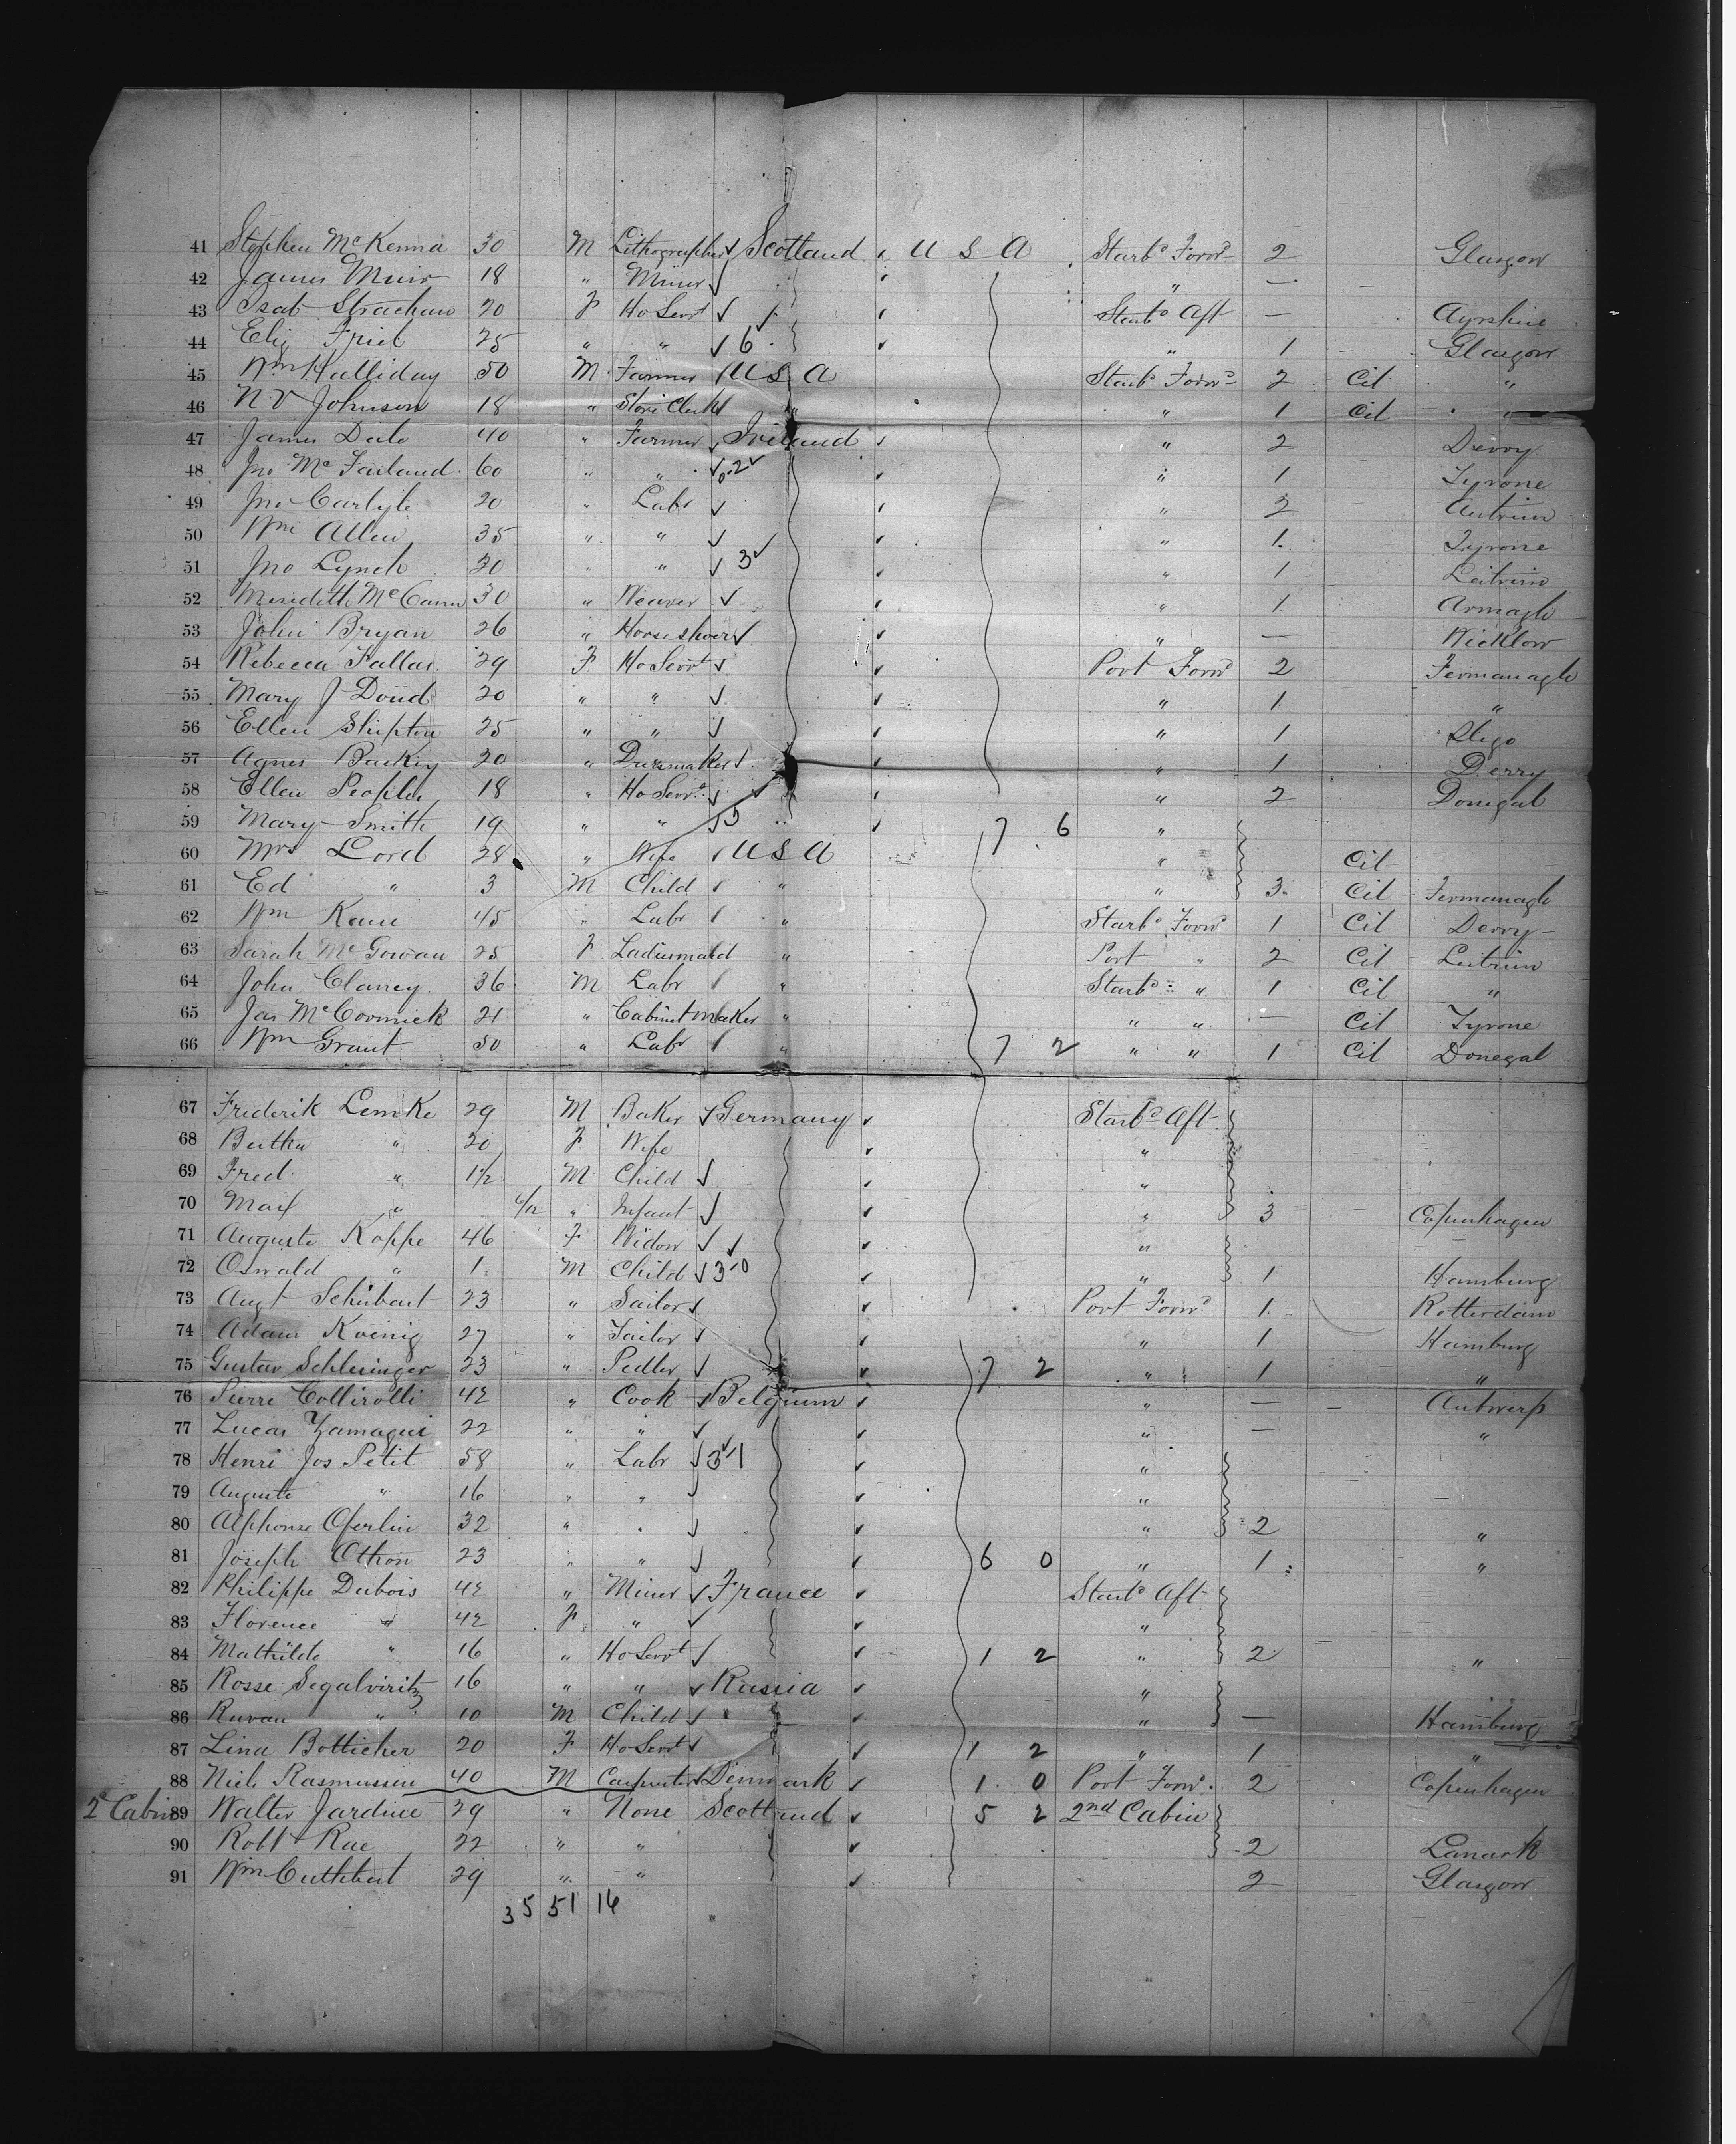 41 Stephen McKenna 30 M Lithographer Scotland U S A Starbd Forwd 2 Glasgow
42 James Muir 18 " Miner " —
43 Isab Strachan 20 F Ho Servt Starbd Aft — Ayrshire
44 Eliz Friel 25 " " 6 " 1 Glasgow
45 Wm Halliday 50 M Farmer U S A Starbd Forwd 2 Cit "
46 N V Johnson 18 " Store Clerk " " 1 Cit "
47 James Dale 40 " Farmer Ireland " 2 Derry
48 Jno McFarland 60 " " 0.2 " 1 Tyrone
49 Jno Carlyle 20 " Labr " 2 Antrim
50 Wm Allen 35 " " " 1 Tyrone
51 Jno Lynch 20 " " 3 " 1 Leitrim
52 Meredith McCann 30 " Weaver " 1 Armagh
53 John Bryan 26 " Horseshoer " — Wicklow
54 Rebecca Fallas 29 F Ho Servt Port Forwd 2 Fermanagh
55 Mary J Doud 20 " " " 1 "
56 Ellen Shipton 25 " " " 1 Sligo
57 Agnes 20 " Dressmaker " 1 Derry
58 Ellen Peoples 18 " Ho Servt " 2 Donegal
59 Mary Smith 19 " " 5 7 6 "
60 Mrs Lord 28 " Wife U S A " Cit
61 Ed " 3 M Child " " 3 Cit Fermanagh
62 Wm Kane 45 " Labr " Starbd Forwd 1 Cit Derry
63 Sarah McGowan 25 F Ladiesmaid " Port " 2 Cit Leitrim
64 John Clancy 36 M Labr " Starbd " 1 Cit "
65 Jas McCormick 21 " Cabinetmaker " " " — Cit Tyrone
66 Wm Grant 50 " Labr " 7 2 " " 1 Cit Donegal
67 Frederik Lemke 29 M Baker Germany Starbd Aft
68 Bertha " 20 F Wife "
69 Fred " 1½ M Child "
70 Max " " Infant " 3 Copenhagen
71 Auguste Koppe 46 F Widow "
72 Oswald " 1 M Child 3 0 " 1 Hamburg
73 Augt Schubart 23 " Sailor Port Forwd 1 Rotterdam
74 Adam Koenig 27 " Tailor " 1 Hamburg
75 Gustav Schlesinger 23 " Pedler 7 2 " 1 "
76 Pierre Collirolli 42 " Cook Belgium " — Antwerp
77 Lucas Zamaqui 22 " " " — "
78 Henri Jos Petit 58 " Labr 3 1 "
79 Auguste " 16 " " "
80 Alphonse Oferlin 32 " " " 2 "
81 Joseph Othon 23 " " 6 0 " 1 "
82 Philippe Dubois 42 " Miner France Starbd Aft
83 Florence " 42 F " "
84 Mathilde " 16 " Ho Servt 1 2 " 2 "
85 Rosse Segalviritz 16 " " Russia "
86 Ruvan " 10 M Child " — Hamburg
87 Lina Botticher 20 F Ho Servt 1 2 " 1 "
88 Niels Rasmussen 40 M Carpenter Denmark 1 0 Port Forwd 2 Copenhagen
2d Cabin 89 Walter Jardine 29 " None Scotland 5 2 2nd Cabin
90 Robt Rae 22 " " 2 Lanark
91 Wm Cuthbert 29 " " 2 Glasgow
35 51 16